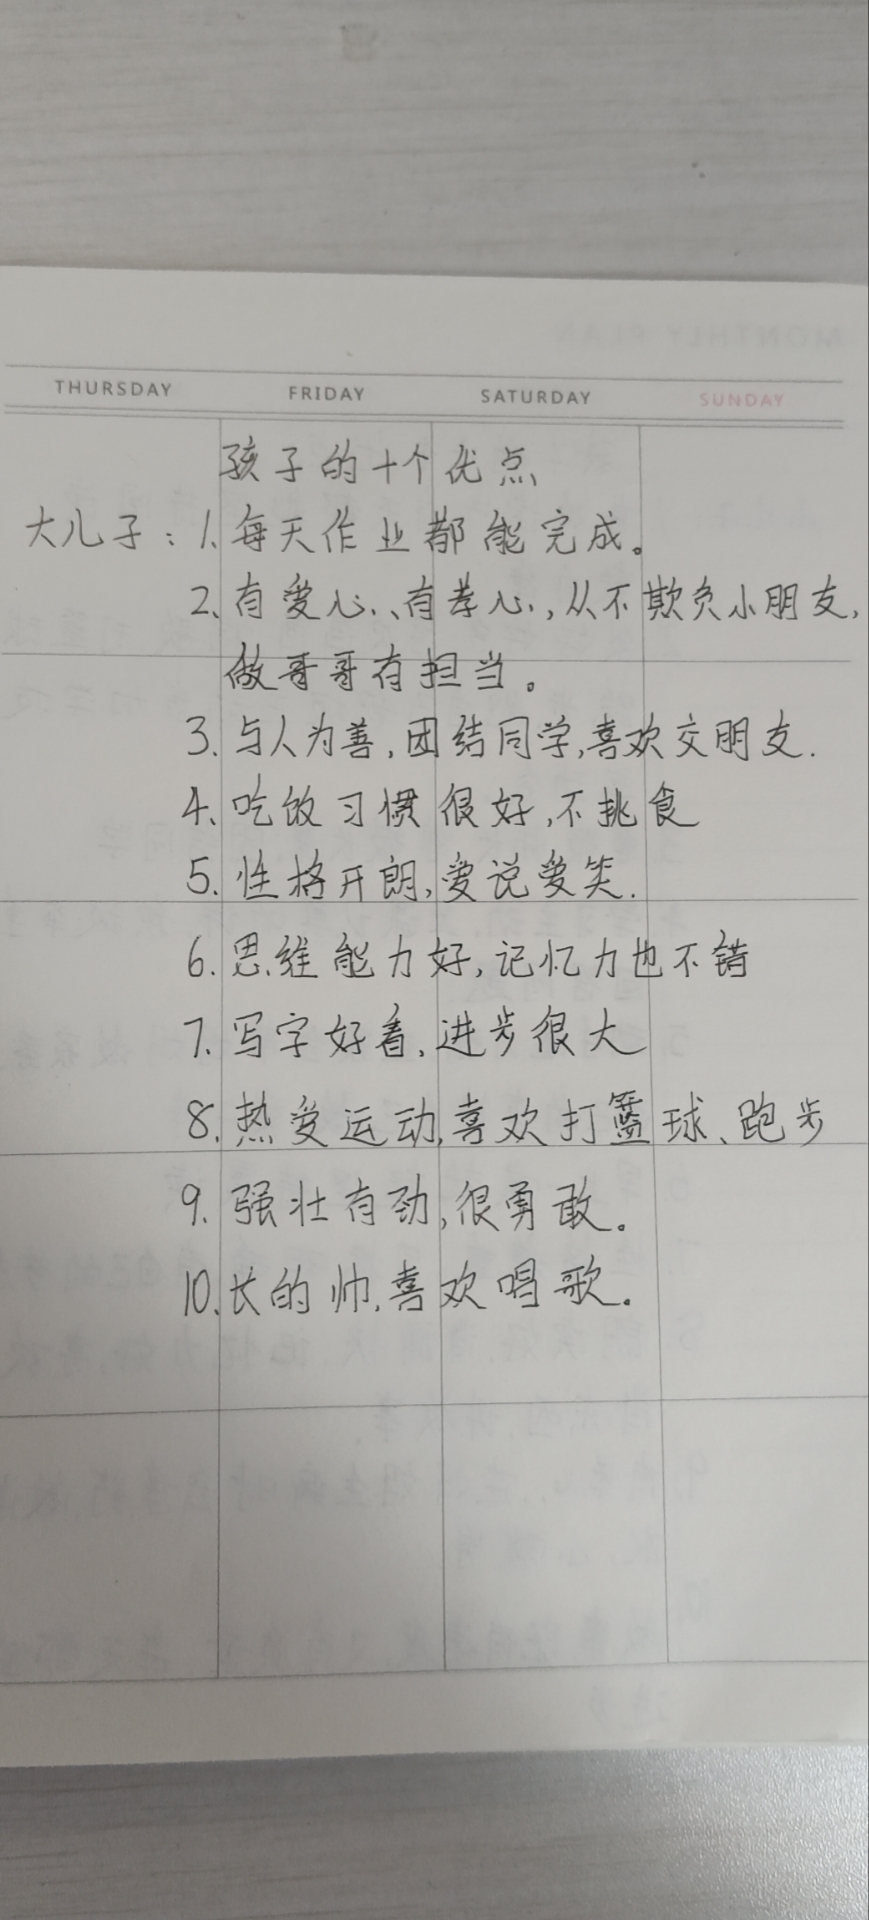 THURSDAY FRIDAY SATURDAY SUNDAY
孩子的十个优点
大儿子：1.每天作业都能完成。
2.有爱心、有孝心，从不欺负小朋友，
做哥哥有担当。
3.与人为善，团结同学，喜欢交朋友.
4.吃饭习惯很好，不挑食
5.性格开朗，爱说爱笑.
6.思维能力好，记忆力也不错
7.写字好看，进步很大
8.热爱运动，喜欢打篮球、跑步
9.强壮有劲，很勇敢。
10.长的帅，喜欢唱歌。